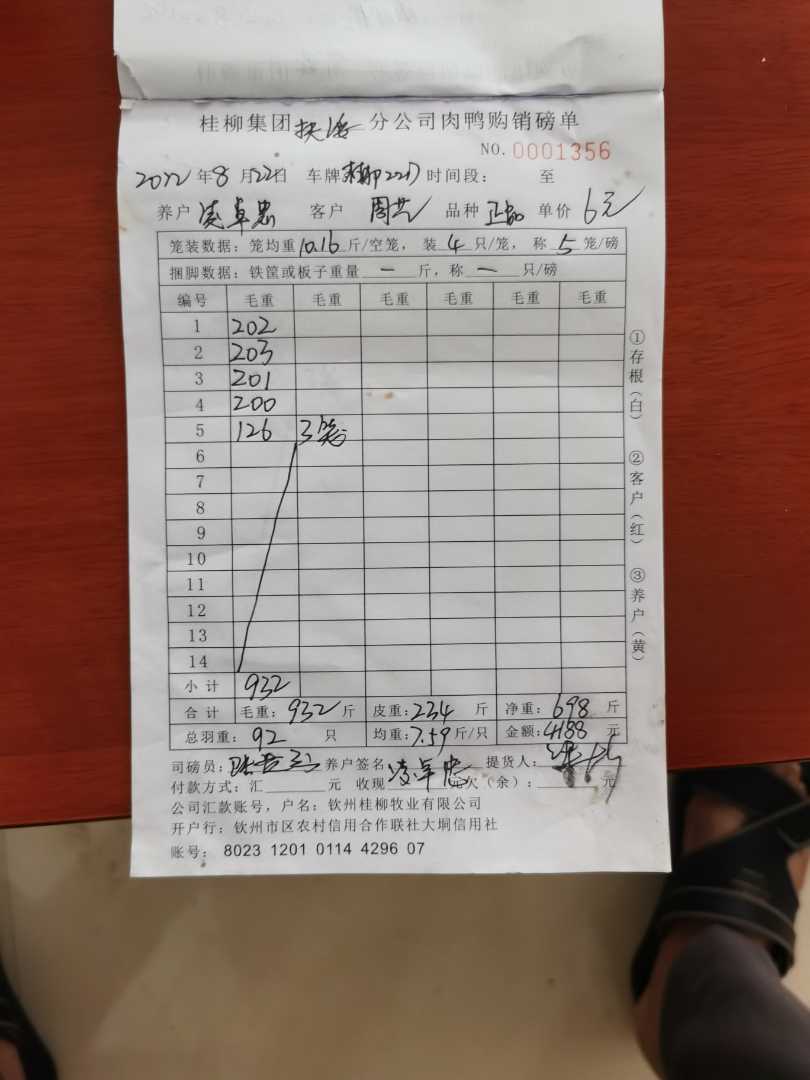 桂柳集团扶海分公司肉鸭购销磅单
NO. 0001356
2022年8月22日 车牌桂柳2217 时间段: 至
养户 凌卓忠 客户 周艺 品种 正品 单价 6元
笼装数据: 笼均重10.16斤/空笼, 装4只/笼, 称5笼/磅
捆脚数据: 铁筐或板子重量 — 斤, 称 — 只/磅
编号 毛重 毛重 毛重 毛重 毛重 毛重
1 202
2 203
3 201
4 200
5 126 3笼
6
7
8
9
10
11
12
13
14
小计 932
合计 毛重: 932斤 皮重: 234斤 净重: 698斤
总羽重: 92只 均重: 7.59斤/只 金额: 4188元
司磅员: 养户签名 凌卓忠 提货人:
付款方式: 汇 元 收现 元欠(余): 元
公司汇款账号, 户名: 钦州桂柳牧业有限公司
开户行: 钦州市区农村信用合作联社大垌信用社
账号: 8023 1201 0114 4296 07
①存根(白) ②客户(红) ③养户(黄)